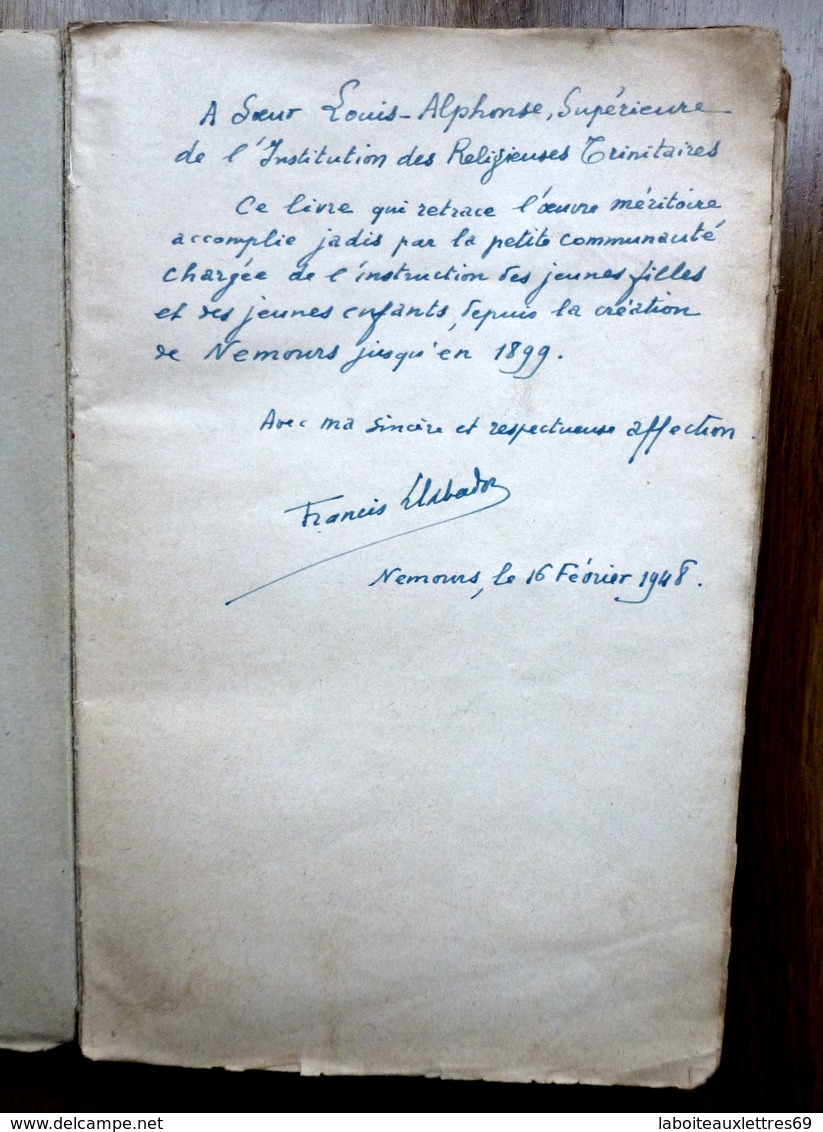 A Sœur Louis-Alphonse, Supérieure
de l'Institution des Religieuses Trinitaires
Ce livre qui retrace l'œuvre méritoire
accomplie jadis par la petite communauté
chargée de l'instruction des jeunes filles
et des jeunes enfants, depuis la création
de Nemours jusqu'en 1899.
Avec ma sincère et respectueuse affection
Francis Llabador
Nemours, le 16 Février 1948.
www.delcampe.net
laboiteauxlettres69